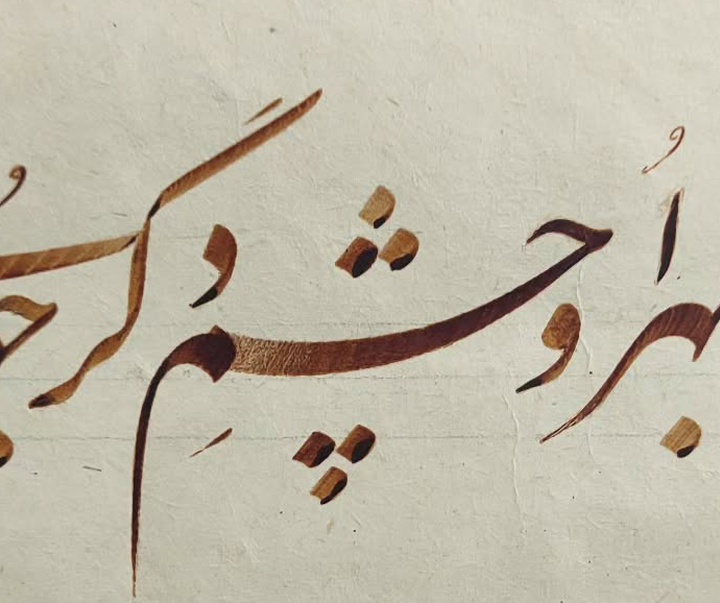 بر اُو چشمِ دگر